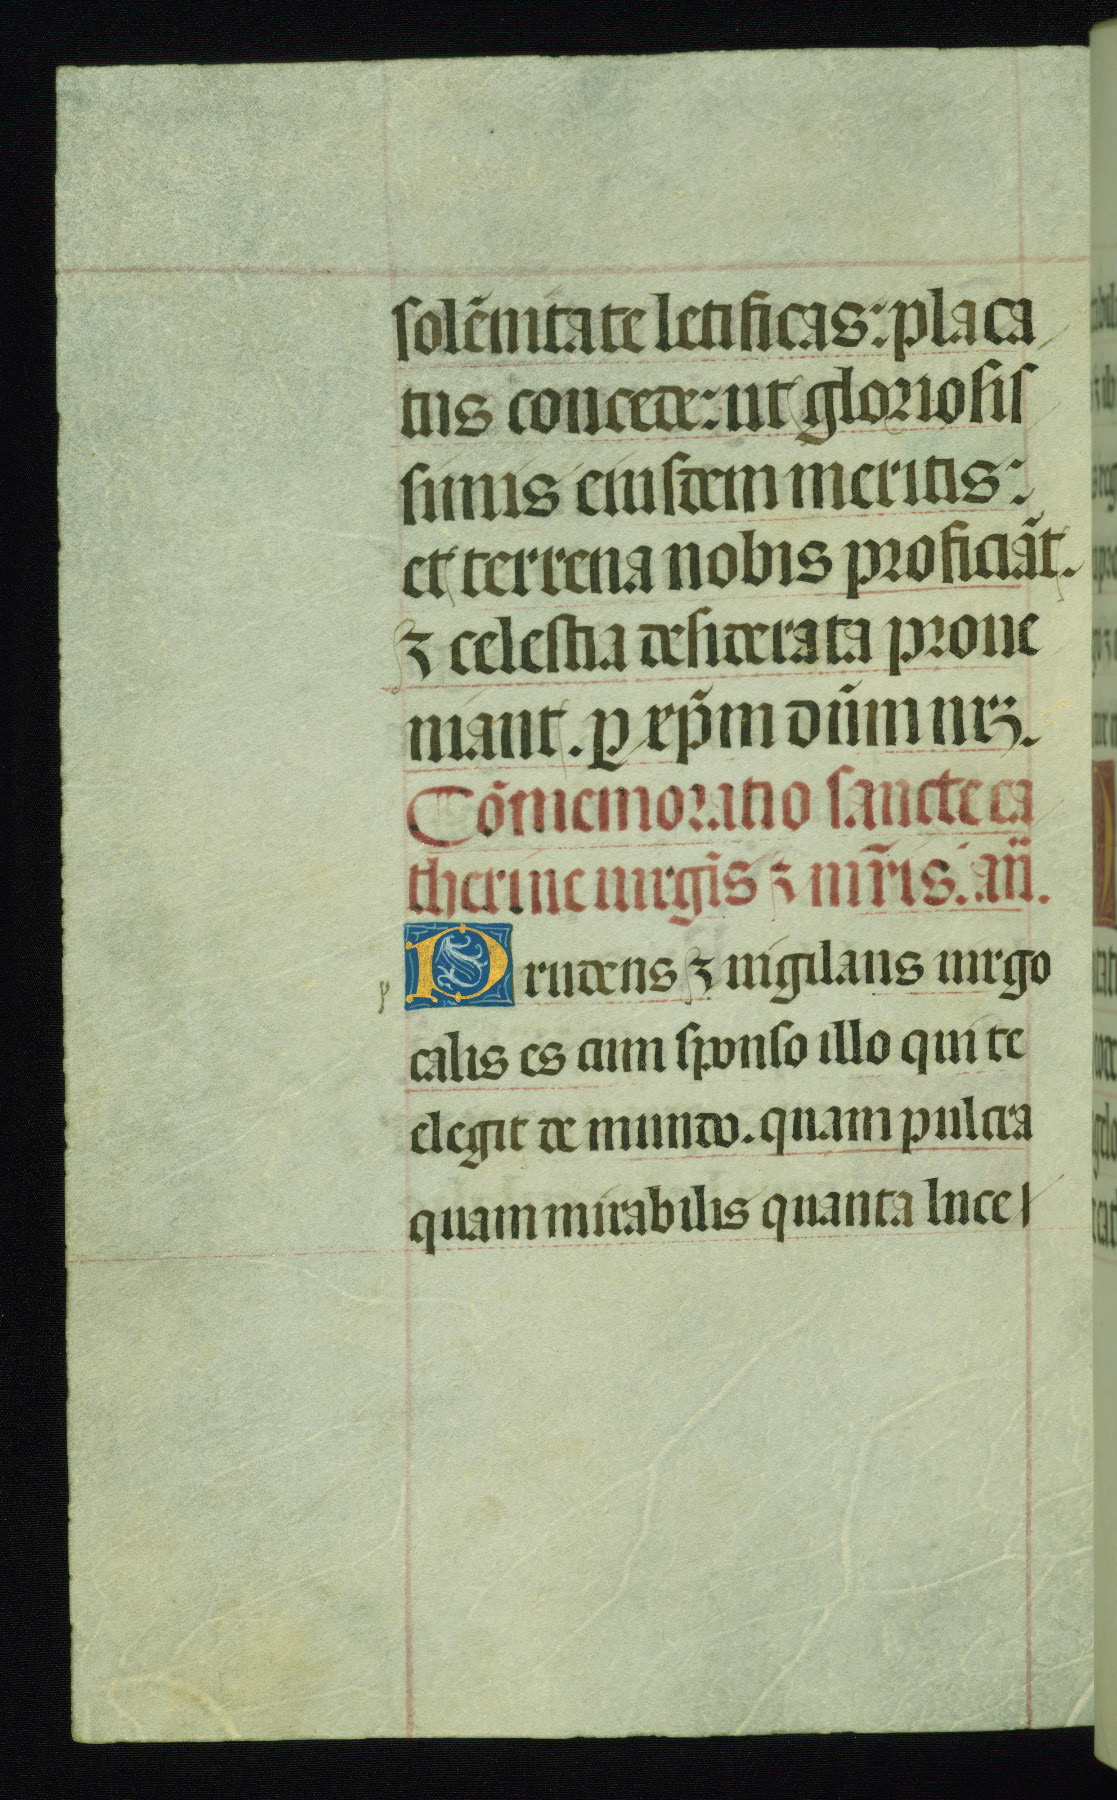 solēnitate letificas: placa
tus concede: ut gloriosis
simis eiusdem meritis:
et terrena nobis proficiāt.
⁊ celestia desiderata proue
niant. ꝑ xp̄m dūm nrꝫ.
Cōmemoratio sancte ca
therine uirgīs ⁊ mr̄is. an̄.
Prudens ⁊ uigilans uirgo
calis es cum sponso illo qui te
elegit de mundo. quam pulcra
quam mirabilis quanta luce